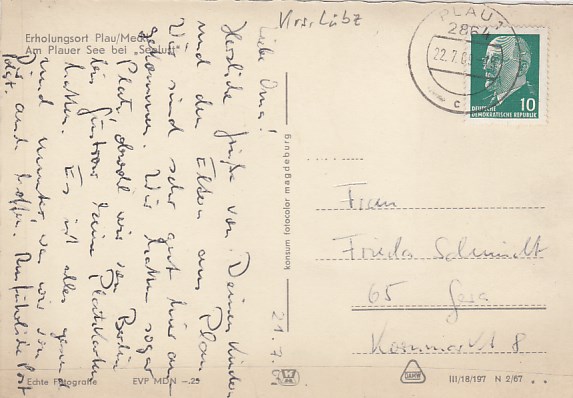 Krs. Lübz
Erholungsort Plau/Meckl
Am Plauer See bei „Seelust"
PLAU
2864
22.7.69
c
DEUTSCHE
DEMOKRATISCHE REPUBLIK
10
Liebe Oma!
Herzliche Grüße von Deinen Kindern
und den Eltern aus Plau.
Wir sind sehr gut hier an-
gekommen. Wir hatten sogar
Platz, obwohl wir von Berlin
bis Güstrow keine Platzkarten
hatten. Es ist alles gesund
und munter, was wir von
Dir auch hoffen. Ausführliche Post
folgt.
21.7.69
konsum fotocolor magdeburg
Frau
Frieda Schmidt
65 Gera
8
Echte Fotografie
EVP MDN -.25
III/18/197 N 2/67